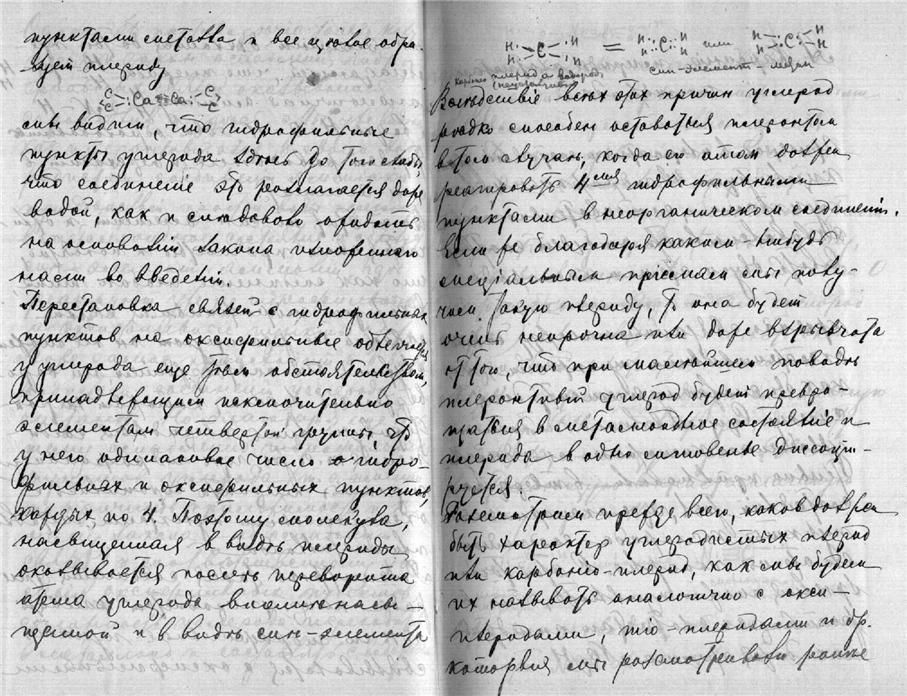 пунктами системы и все целое обра-
зует плериду
C C C ⫶Ca≡Ca⫶ C C C
мы видим, что гидрофильные
пункты углерода здесь до того слабы,
что соединение это разлагается даже
водой, как и следовало ожидать
на основаніи закона изложеннаго
нами во введеніи.
Перестановка связей с гидрофильных
пунктов на оксифильные облегчается
у углерода еще тем обстоятельством,
принадлежащим исключительно
элементам четвертой группы, что
у него одинаковое число и гидро-
фильных и оксифильных пунктов,
каждых по 4. Поэтому молекула,
насыщенная в виде плериды
оказывается после переворота
атома углерода вполне насы-
щенной и в виде син-элемента
H H C H H = H H C H H или H H C H H
карбоно плерида водорода
син-элемент - метан
Вследствіе всех этих причин углерод
редко способен оставаться плеронтом
в том случае, когда его атом должен
реагировать 4мя гидрофильными
пунктами в неорганическом соединеніи.
Если же благодаря каким-нибудь
спеціальным пріемам мы полу-
чим такую плериду, то она будет
очень непрочна или даже взрывчата
от того, что при малейшем поводе
плеронтный углерод будет превра-
щаться в состояніе и
плерида в одно мгновенье диссоціи-
руется.
Рассмотрим прежде всего, каков должен
быть характер углеродистых плерид
или карбоно-плерид, как мы будем
их называть аналогично с окси-
плеридами, тіо-плеридами и др.
которыя мы рассматривали ранее